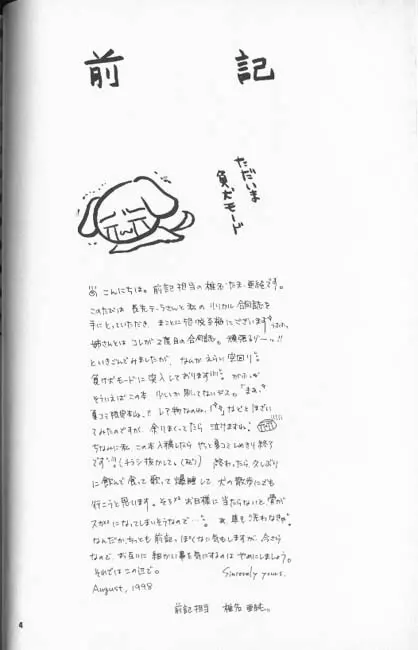 前記
ただいま
負犬モード
こんにちは。前記担当の椎名・たま・亜純です。
このたびは 長先テーラさんと私の リリカル合同誌を
手にとっていただき、まことに 恐悦至極にございます
姉さんとは コレが2度目の合同誌。頑張るゾーっ!!
といきごんでみましたが、なんか えらい空回り。
負け犬モードに突入しております
そういえばこの本 少ししか刷ってないデス。
夏コミ
てみたのですが、余りまくってたら 泣けますね。
ちなみに私、この本入稿したら やっと夏コミしめきり終了
です (チラシ抜かして。) 終わったら、久しぶり
に飲んで食って歌って爆睡して 犬の散歩にでも
行こうと思います。そろそろお日様に当たらないと、骨が
スカスカになってしまいそうなので…。あ、車も洗わなきゃ。
なんだか、ちっとも前記っぽくない気もしますが、今さら
なので、お互いに細かい事を気にするのは やめにしましょう。
それでは この辺で。 Sincerely yours.
August, 1998
前記担当 椎名 亜純。
4